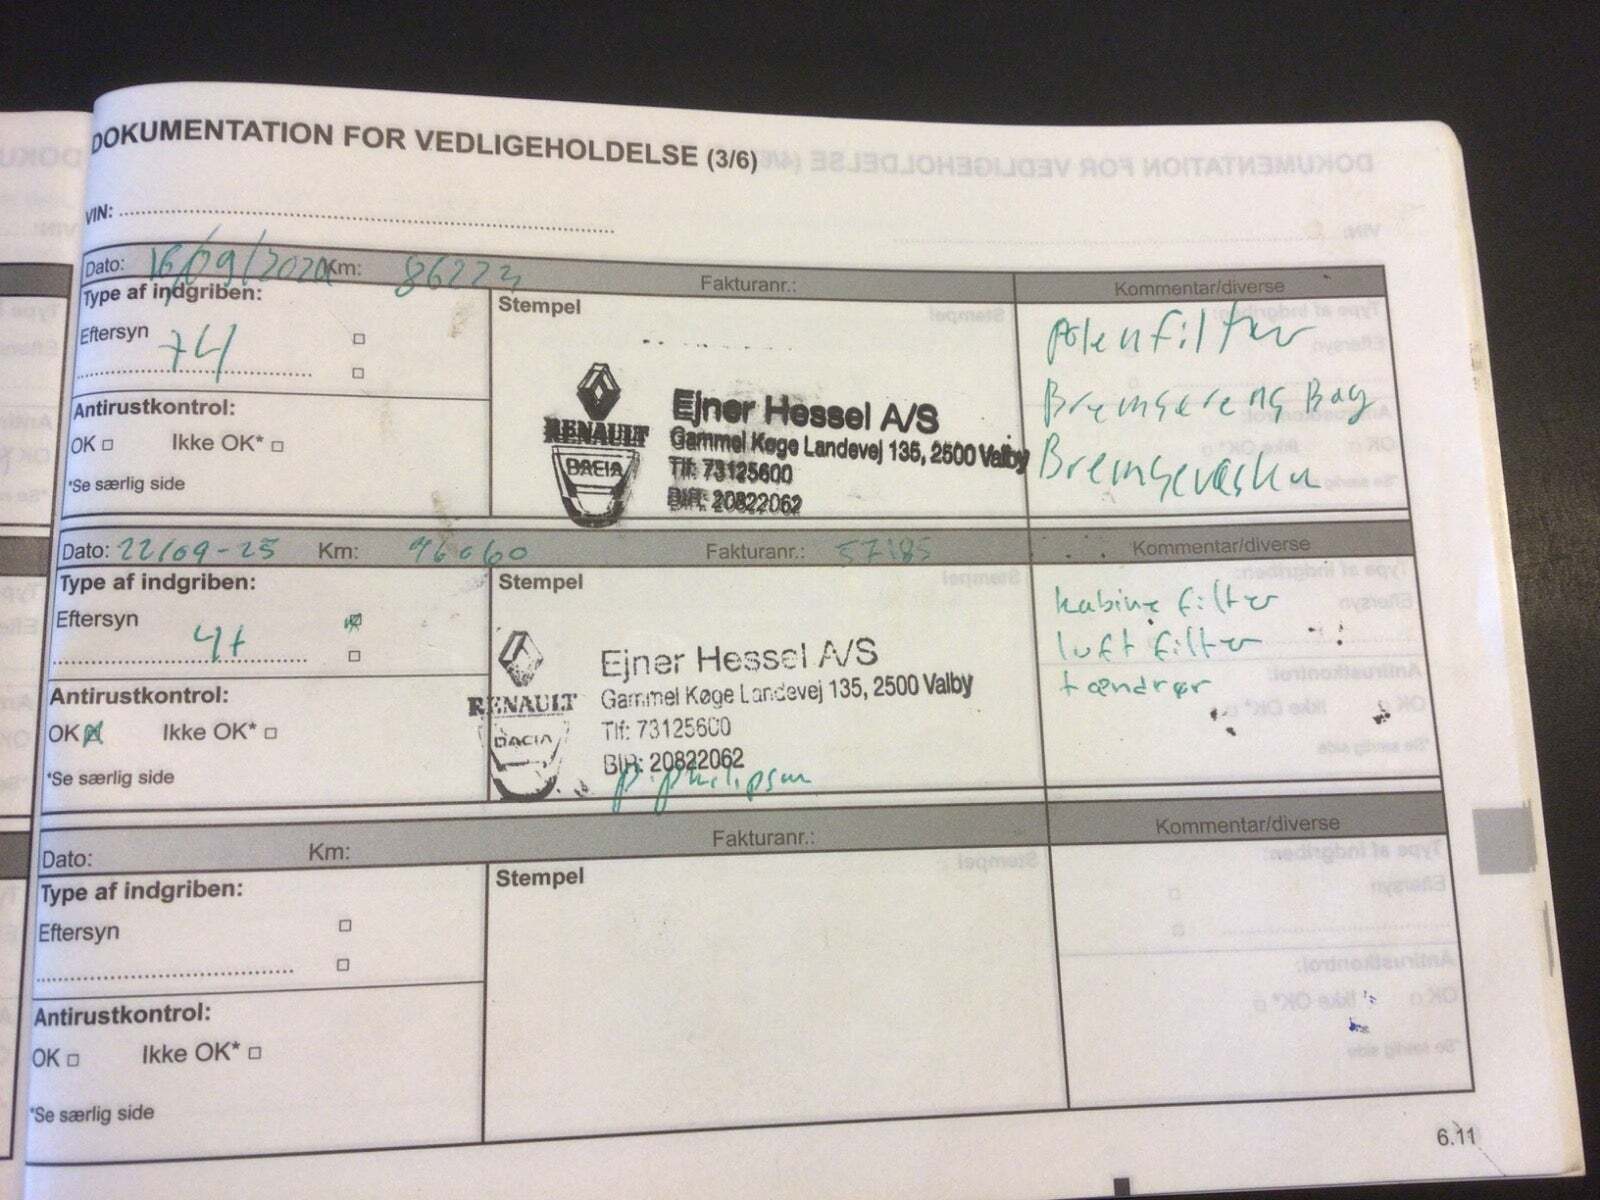 DOKUMENTATION FOR VEDLIGEHOLDELSE (3/6)
VIN:
Dato: Km: 86223 Fakturanr.: Kommentar/diverse
Type af indgriben:
Eftersyn
Stempel
polenfilter
Bremserens Bag
Bremsevæske
RENAULT
DACIA
Ejner Hessel A/S
Gammel Køge Landevej 135, 2500 Valby
Tlf: 73125600
BIR: 20822062
Antirustkontrol:
OK Ikke OK*
*Se særlig side
Dato: 22/09-25 Km: 96060 Fakturanr.: 57185 Kommentar/diverse
Type af indgriben:
Eftersyn
Stempel
kabine filter
luft filter
tændrør
RENAULT
DACIA
Ejner Hessel A/S
Gammel Køge Landevej 135, 2500 Valby
Tlf: 73125600
BIR: 20822062
Antirustkontrol:
OK Ikke OK*
*Se særlig side
Dato: Km: Fakturanr.: Kommentar/diverse
Type af indgriben:
Eftersyn
Stempel
Antirustkontrol:
OK Ikke OK*
*Se særlig side
6.11